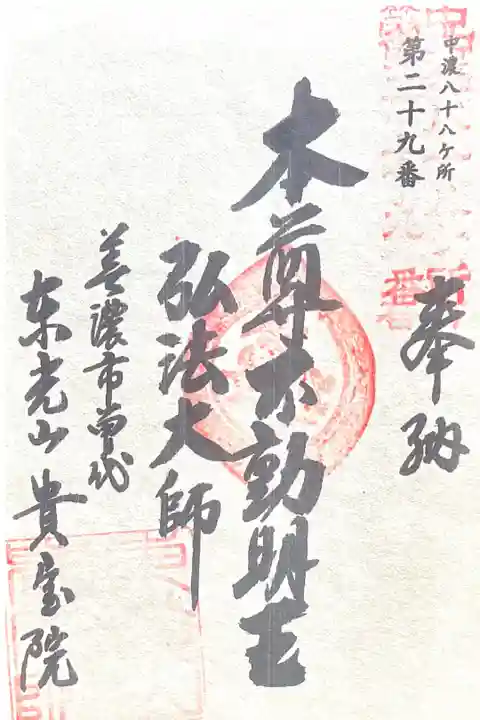 中濃八十八ケ所
第二十九番
奉納
本尊不動明王
弘法大師
美濃市曽代
東光山貴宝院